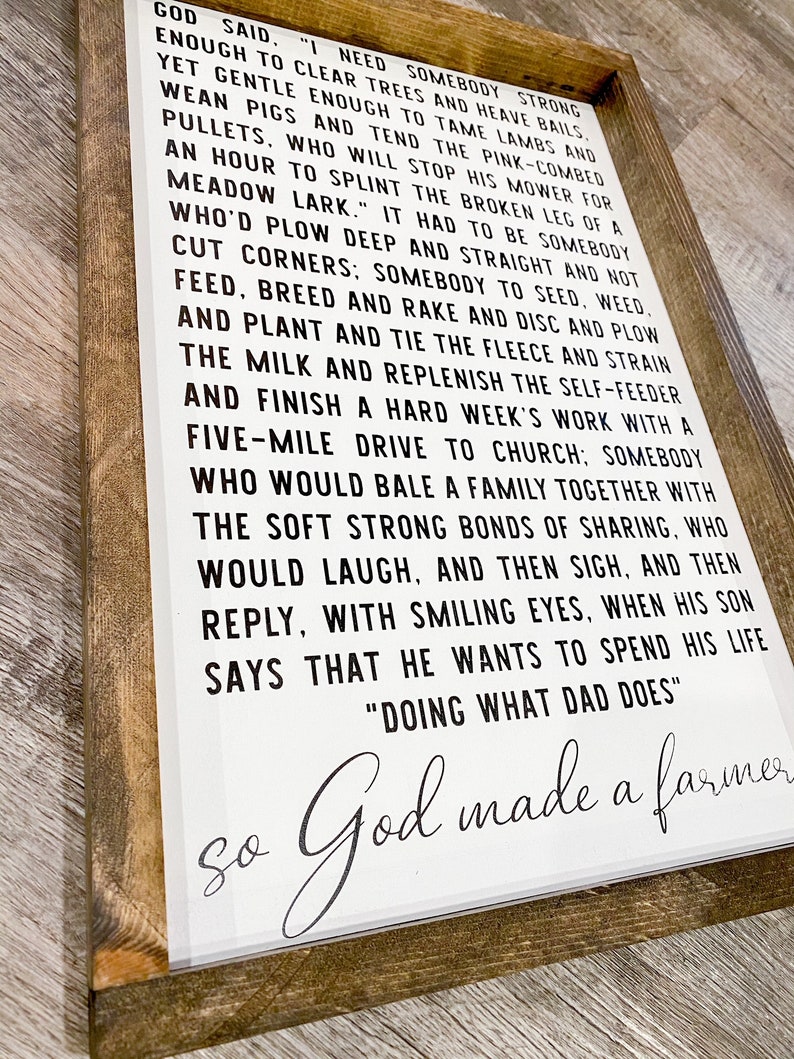 GOD SAID, "I NEED SOMEBODY STRONG
ENOUGH TO CLEAR TREES AND HEAVE BAILS,
YET GENTLE ENOUGH TO TAME LAMBS AND
WEAN PIGS AND TEND THE PINK-COMBED
PULLETS, WHO WILL STOP HIS MOWER FOR
AN HOUR TO SPLINT THE BROKEN LEG OF A
MEADOW LARK." IT HAD TO BE SOMEBODY
WHO'D PLOW DEEP AND STRAIGHT AND NOT
CUT CORNERS; SOMEBODY TO SEED, WEED,
FEED, BREED AND RAKE AND DISC AND PLOW
AND PLANT AND TIE THE FLEECE AND STRAIN
THE MILK AND REPLENISH THE SELF-FEEDER
AND FINISH A HARD WEEK'S WORK WITH A
FIVE-MILE DRIVE TO CHURCH; SOMEBODY
WHO WOULD BALE A FAMILY TOGETHER WITH
THE SOFT STRONG BONDS OF SHARING, WHO
WOULD LAUGH, AND THEN SIGH, AND THEN
REPLY, WITH SMILING EYES, WHEN HIS SON
SAYS THAT HE WANTS TO SPEND HIS LIFE
"DOING WHAT DAD DOES"
so God made a farmer